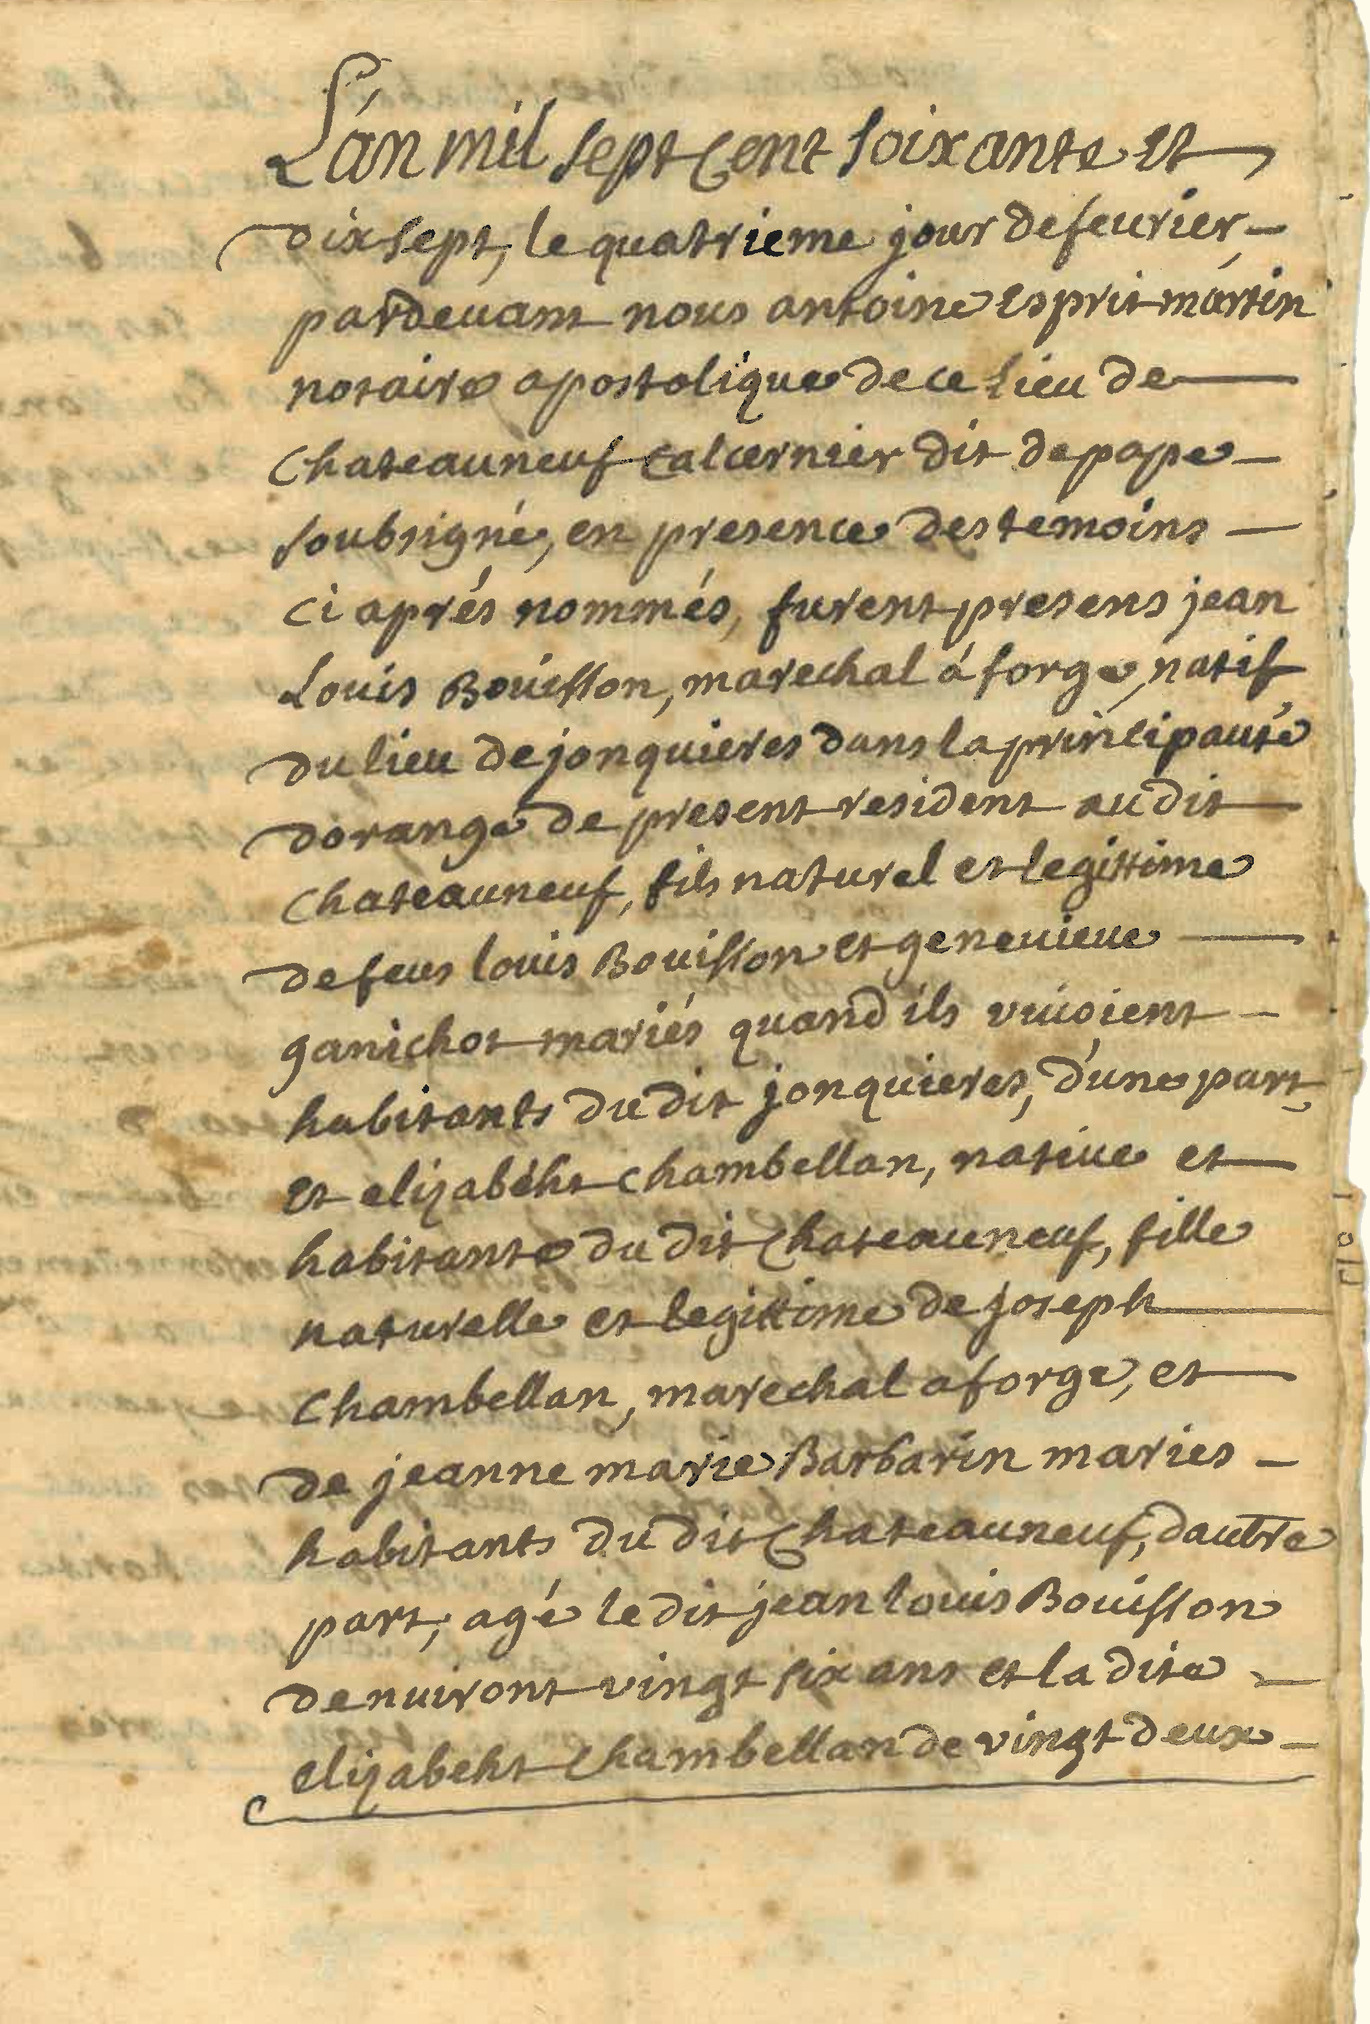 L'an mil sept Cent soixante et
dix sept, le quatrieme jour de feurier,
pardeuant nous antoine esprit martin
notaire apostolique de ce Lieu de
Chateauneuf calcernier dit de pape
soubsigné, en presence des temoins
ci aprés nommés, furent presens jean
Louis Bouisson, marechal á forge, natif
du lieu de jonquieres dans la principauté
dorange de present resident au dit
chateauneuf, fils naturel et legittime
de feus louis Bouisson et geneuieue
ganichot mariés quand ils viuoient
habitants du dit jonquieres, d'une part,
et elizabéht chambellan, natiue et
habitante du dit Chateauneuf, fille
naturelle et legittime de joseph
chambellan, marechal a forge, et
de jeanne marie Barbarin maries
habitants du dit Chateauneuf, dautre
part, agé le dit jean louis Bouisson
denuiront vingt six ans et la dite
elizabeht Chambellan de vingt deux